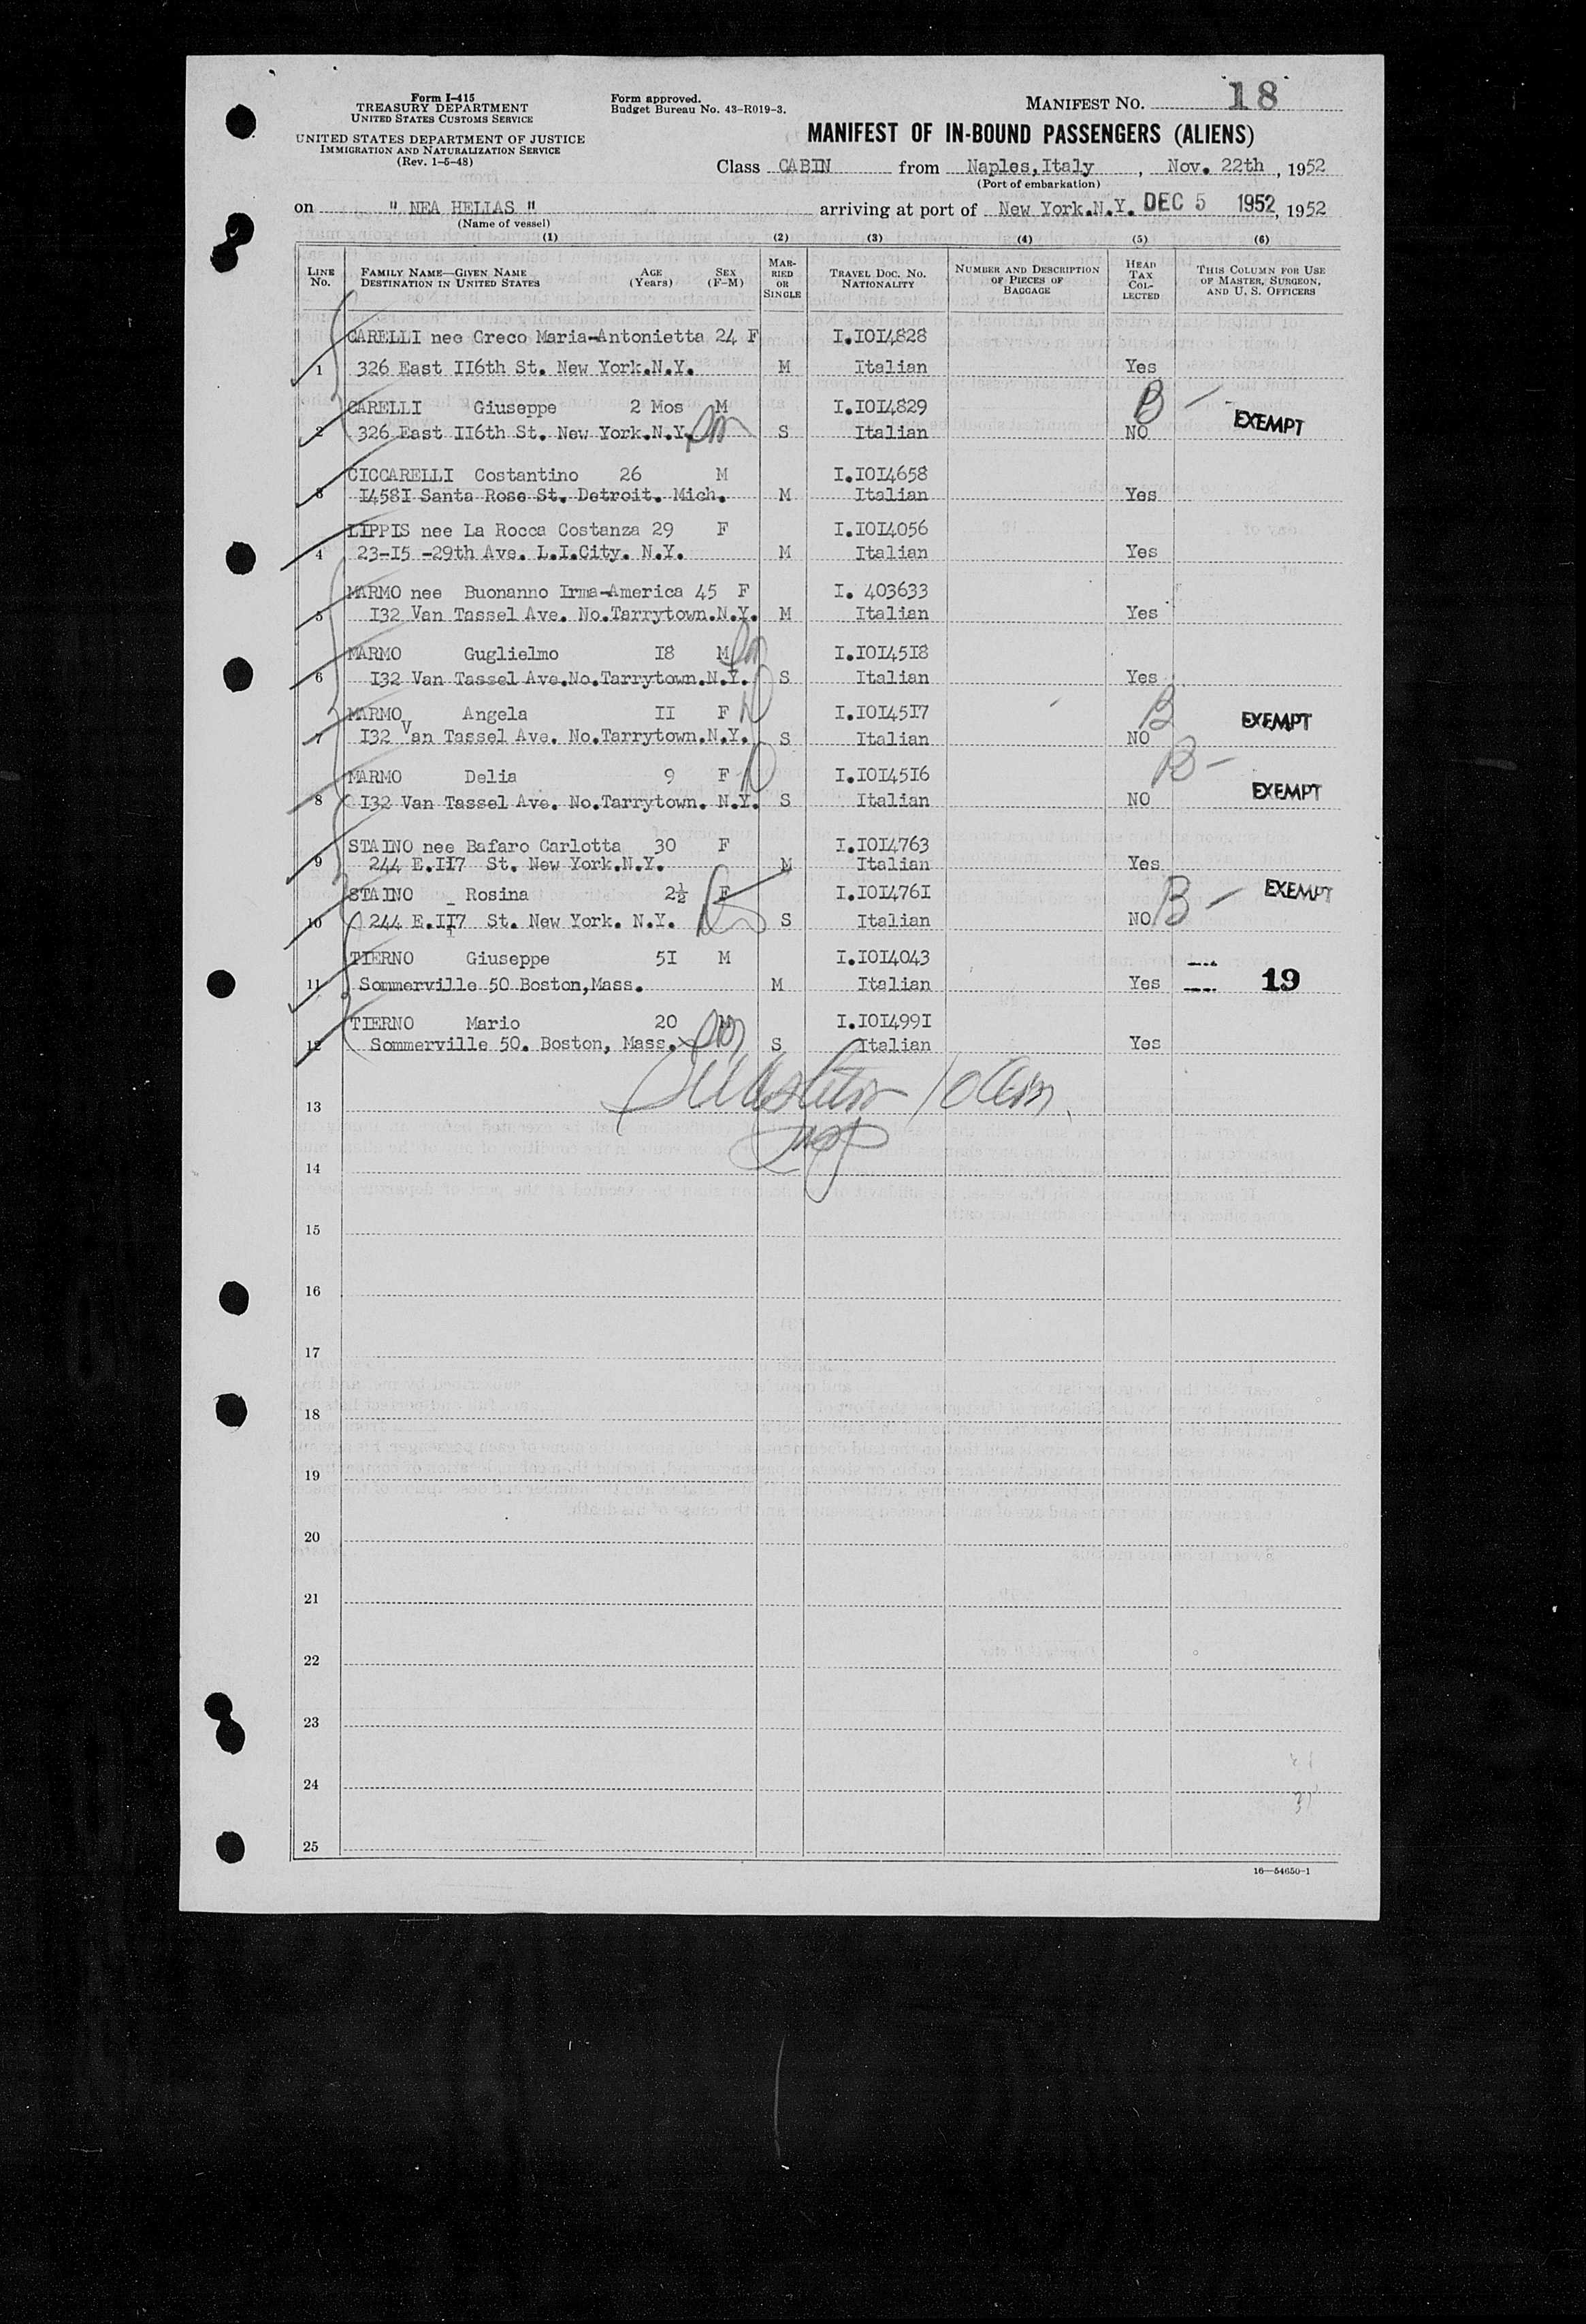 Form I-415
TREASURY DEPARTMENT
UNITED STATES CUSTOMS SERVICE
UNITED STATES DEPARTMENT OF JUSTICE
IMMIGRATION AND NATURALIZATION SERVICE
(Rev. 1-5-48)
Form approved.
Budget Bureau No. 43-R019-3.
MANIFEST NO. 18
MANIFEST OF IN-BOUND PASSENGERS (ALIENS)
Class CABIN from Naples,Italy , Nov. 22th , 1952
(Port of embarkation)
on " NEA HELLAS " arriving at port of New York.N.Y. DEC 5 1952, 1952
(Name of vessel)
(1) (2) (3) (4) (5) (6)
LINE No. FAMILY NAME—GIVEN NAME DESTINATION IN UNITED STATES AGE (Years) SEX (F-M) MARRIED OR SINGLE TRAVEL DOC. NO. NATIONALITY NUMBER AND DESCRIPTION OF PIECES OF BAGGAGE HEAD TAX COLLECTED THIS COLUMN FOR USE OF MASTER, SURGEON, AND U. S. OFFICERS
CARELLI nee Greco Maria-Antonietta 24 F I.IOI4828
1 326 East II6th St. New York.N.Y. M Italian Yes
CARELLI Giuseppe 2 Mos M I.IOI4829 B - EXEMPT
2 326 East II6th St. New York.N.Y. S Italian NO
CICCARELLI Costantino 26 M I.IOI4658
3 I458I Santa Rose St. Detroit. Mich. M Italian Yes
LIPPIS nee La Rocca Costanza 29 F I.IOI4056
4 23-I5 -29th Ave. L.I.City. N.Y. M Italian Yes
MARMO nee Buonanno Irma-America 45 F I. 403633
5 I32 Van Tassel Ave. No.Tarrytown.N.Y. M Italian Yes
MARMO Guglielmo I8 M I.IOI45I8
6 I32 Van Tassel Ave.No.Tarrytown.N.Y. S Italian Yes
MARMO Angela II F I.IOI45I7 B EXEMPT
7 I32 Van Tassel Ave. No.Tarrytown.N.Y. S Italian NO
MARMO Delia 9 F I.IOI45I6 B - EXEMPT
8 I32 Van Tassel Ave. No.Tarrytown. N.Y. S Italian NO
STAINO nee Bafaro Carlotta 30 F I.IOI4763
9 244 E.II7 St. New York.N.Y. M Italian Yes
STAINO _ Rosina 2½ F I.IOI476I B - EXEMPT
10 244 E.II7 St. New York. N.Y. S Italian NO
TIERNO Giuseppe 5I M I.IOI4043
11 Sommerville 50 Boston,Mass. M Italian Yes 19
TIERNO Mario 20 M I.IOI499I
12 Sommerville 50. Boston, Mass. S Italian Yes
13
14
15
16
17
18
19
20
21
22
23
24
25
16—54650-1